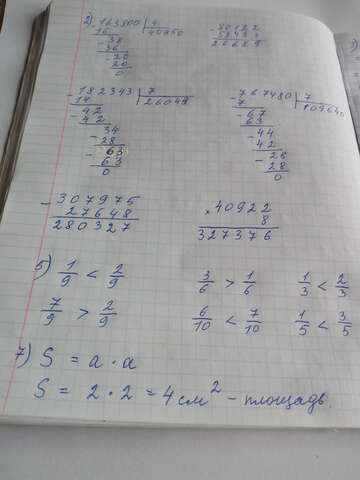 2) 163800 | 4
16 | 40950
- 38
36
- 20
20
0
- 80122
53433
26689
- 182343 | 7
14 | 26049
- 42
42
34
- 28
- 63
63
0
- 767480 | 7
7 | 109640
- 67
63
- 44
42
- 28
28
0
- 307975
27648
280327
× 40922
8
327376
5) 1/9 < 2/9 3/6 > 1/6 1/3 < 2/3
7/9 > 2/9 6/10 < 7/10 1/5 < 3/5
7) S = a · a
S = 2 · 2 = 4 см² - площадь.